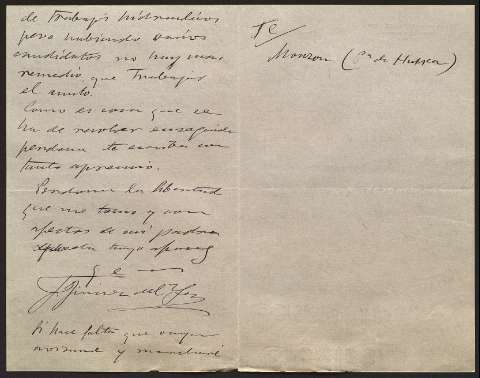 de trabajos hidraulicos
pero habiendo varios
candidatos no hay mas
remedio que trabajar
el asunto.
Como es cosa que se
ha de resolver enseguida
perdona te escriba con
tanto apremio.
Perdona la libertad
que me tomo y con
afectos de mi padre
queda tuyo afmo
q e m
J Jimenez del
Si hace falta que vaya
avisame y marcharé
Monzon (Pa de Huesca)